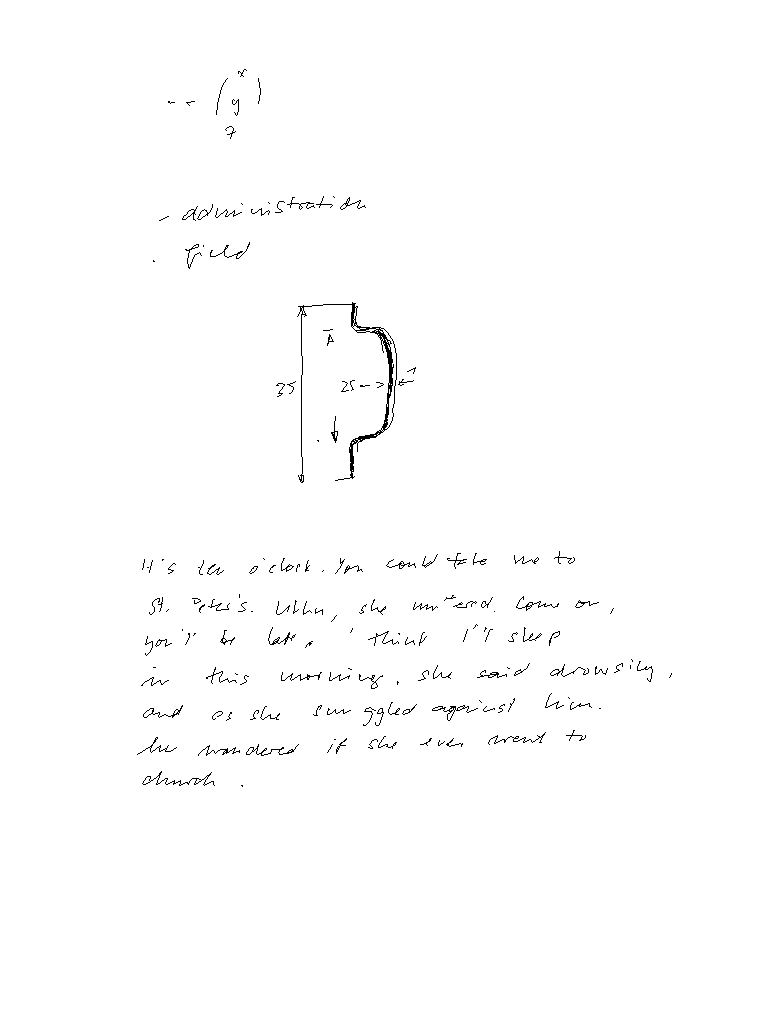 -- (x
y)
7
- administration
. field
A
35 25 -> 1
It's ten o'clock. You could take me to
St. Peter's. Uhhu, she muttered. Come on,
you'll be late. I think I'll sleep
in this morning, she said drowsily,
and as she snuggled against him.
he wondered if she ever went to
church.